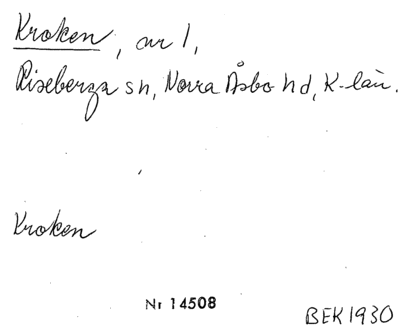 Kroken, nr 1,
Riseberga sn, Norra Åsbo hd, K-län.
Kroken
Nr 14508
BEK 1930